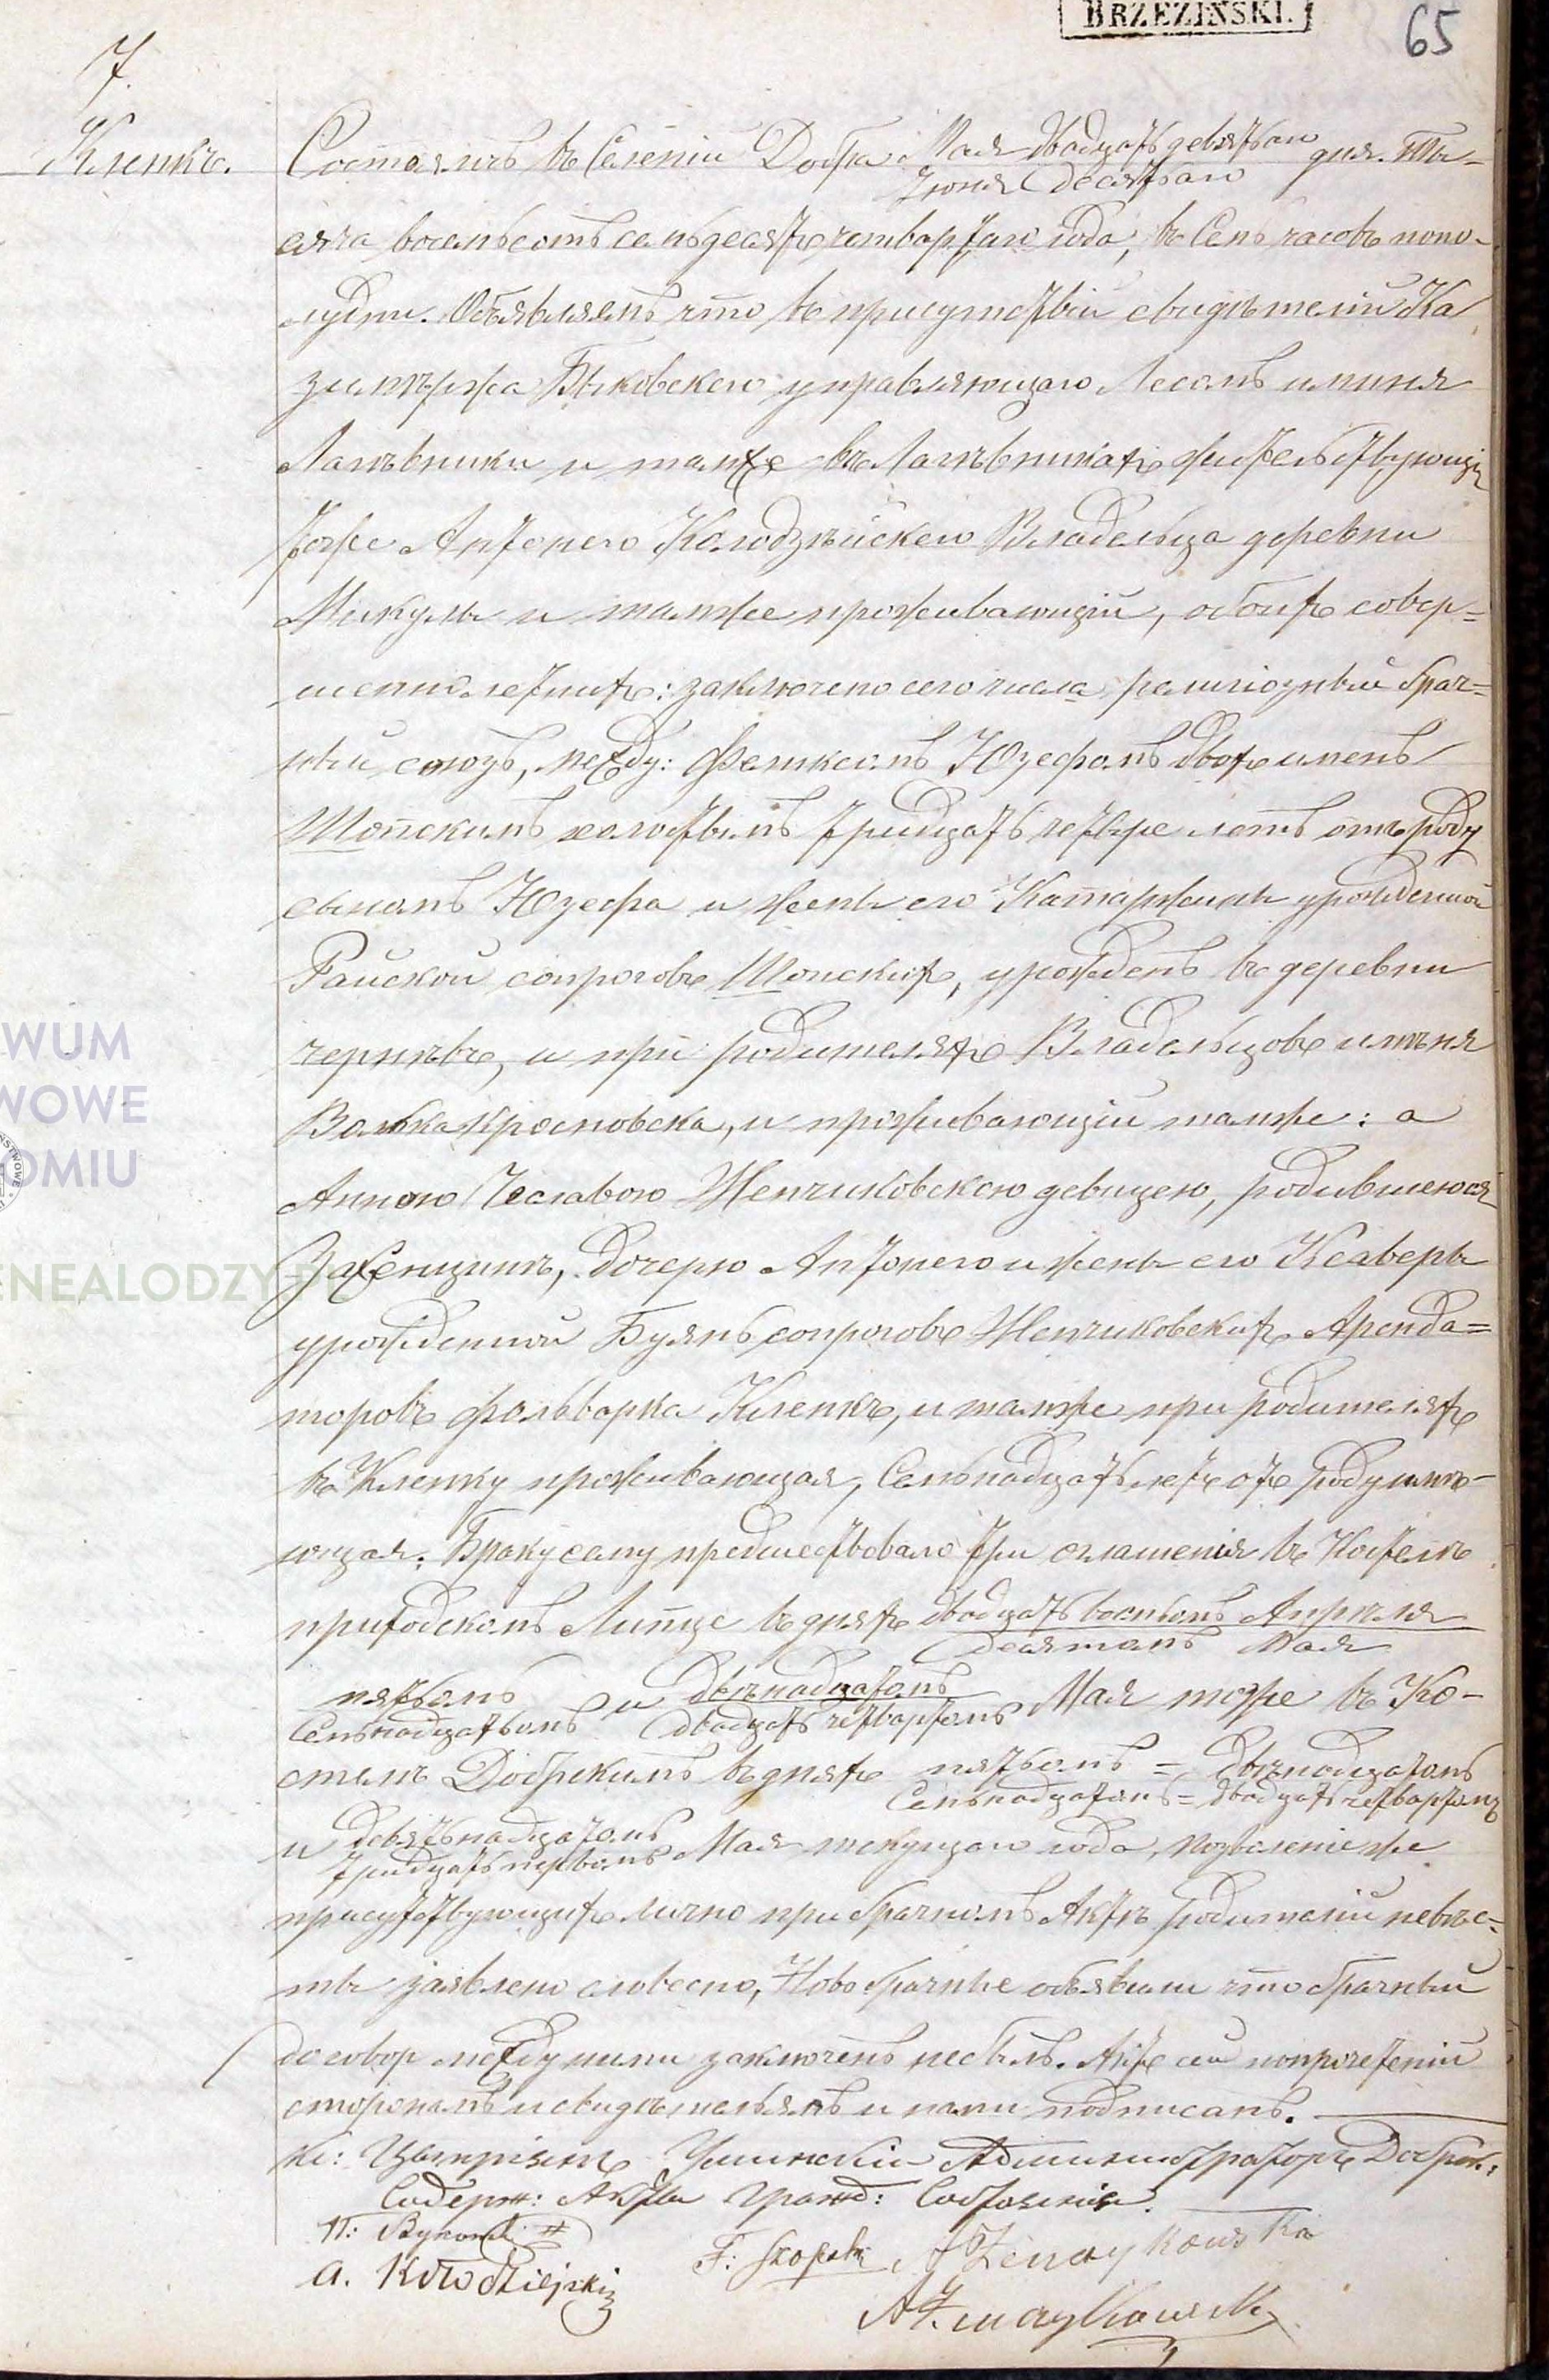 BRZEZIŃSKI.
65
7.
Кленкъ.
Состоялсь въ Селеніи Добра Мая двадцать девятаго дня. Ты-
Іюня десятаго
сяча восемьсотъ семьдесятъ четвартаго года, въ Семь часовъ попо-
лудни. Объявляемъ что въ присутствіи свидѣтелий Ка
зимѣржа Быковскего управляющаго Лесомъ иминя
Лагѣвники и тамже въ Лагѣвникахъ жительствующій
тоже Антонего Колодзѣйскего Владельца деревни
Микулы и тамже проживающій, обоихъ совер-
шеннолетнихъ: заключено сего числа религіозный брач-
ный союзъ, между: Феликсомъ Юзефомъ двохъ именъ
Шопскимъ холостымъ тридцать четыре летъ отъ роду
сыномъ Юзефа и жены его Катаржины урожденной
Райской сопроговъ Шопскихъ, урожденъ въ деревни
чернѣвъ, и при родителяхъ Владельцовъ имѣня
Волька кросновска, и проживающій тамже: а
Анною Чеславою Женчиковскою девицею, родившеюся
Захенщинъ, дочерю Антонего и жены его Ксаверы
урожденной Буянь сопроговъ Женчиковскихъ Аренда=
торовъ фольварка Кленкъ, и тамже при родителяхъ
въ Кленку проживающая, Семьнадцать летъ отъ роду имѣ-
ющая. Браку сему предшествовало три оглашенія въ Костелѣ
приходскомъ Липце въ дняхъ двадцать восьмомъ Апрѣля
десятомъ Мая
пятомъ и двѣнадцатомъ Мая тоже въ Ко-
Семьнадцатомъ двадцать четвартомъ
стелѣ Добрскимъ въ дняхъ пятомъ = двѣнадцатомъ
Семьнадцатомъ = двадцать четвартомъ
и девятьнадцатомъ Мая текущаго года, позволеніе же
тридцать первомъ
присутствующихъ лично при брачномъ Актѣ родителій невѣс-
ты заявлено словесно, Новобрачные объявили что брачный
договор между ними заключенъ небылъ. Актъ сей попрочетеніи
сторонамъ и свидѣтельямъ и нами подписанъ.
Кс: Цыпріянъ Администраторъ Добрск:
Содерж: Акты Гражд: Состоянія.
A. Kołodziejski
F: Szopski A Zenczykowska
A Zenczykowski